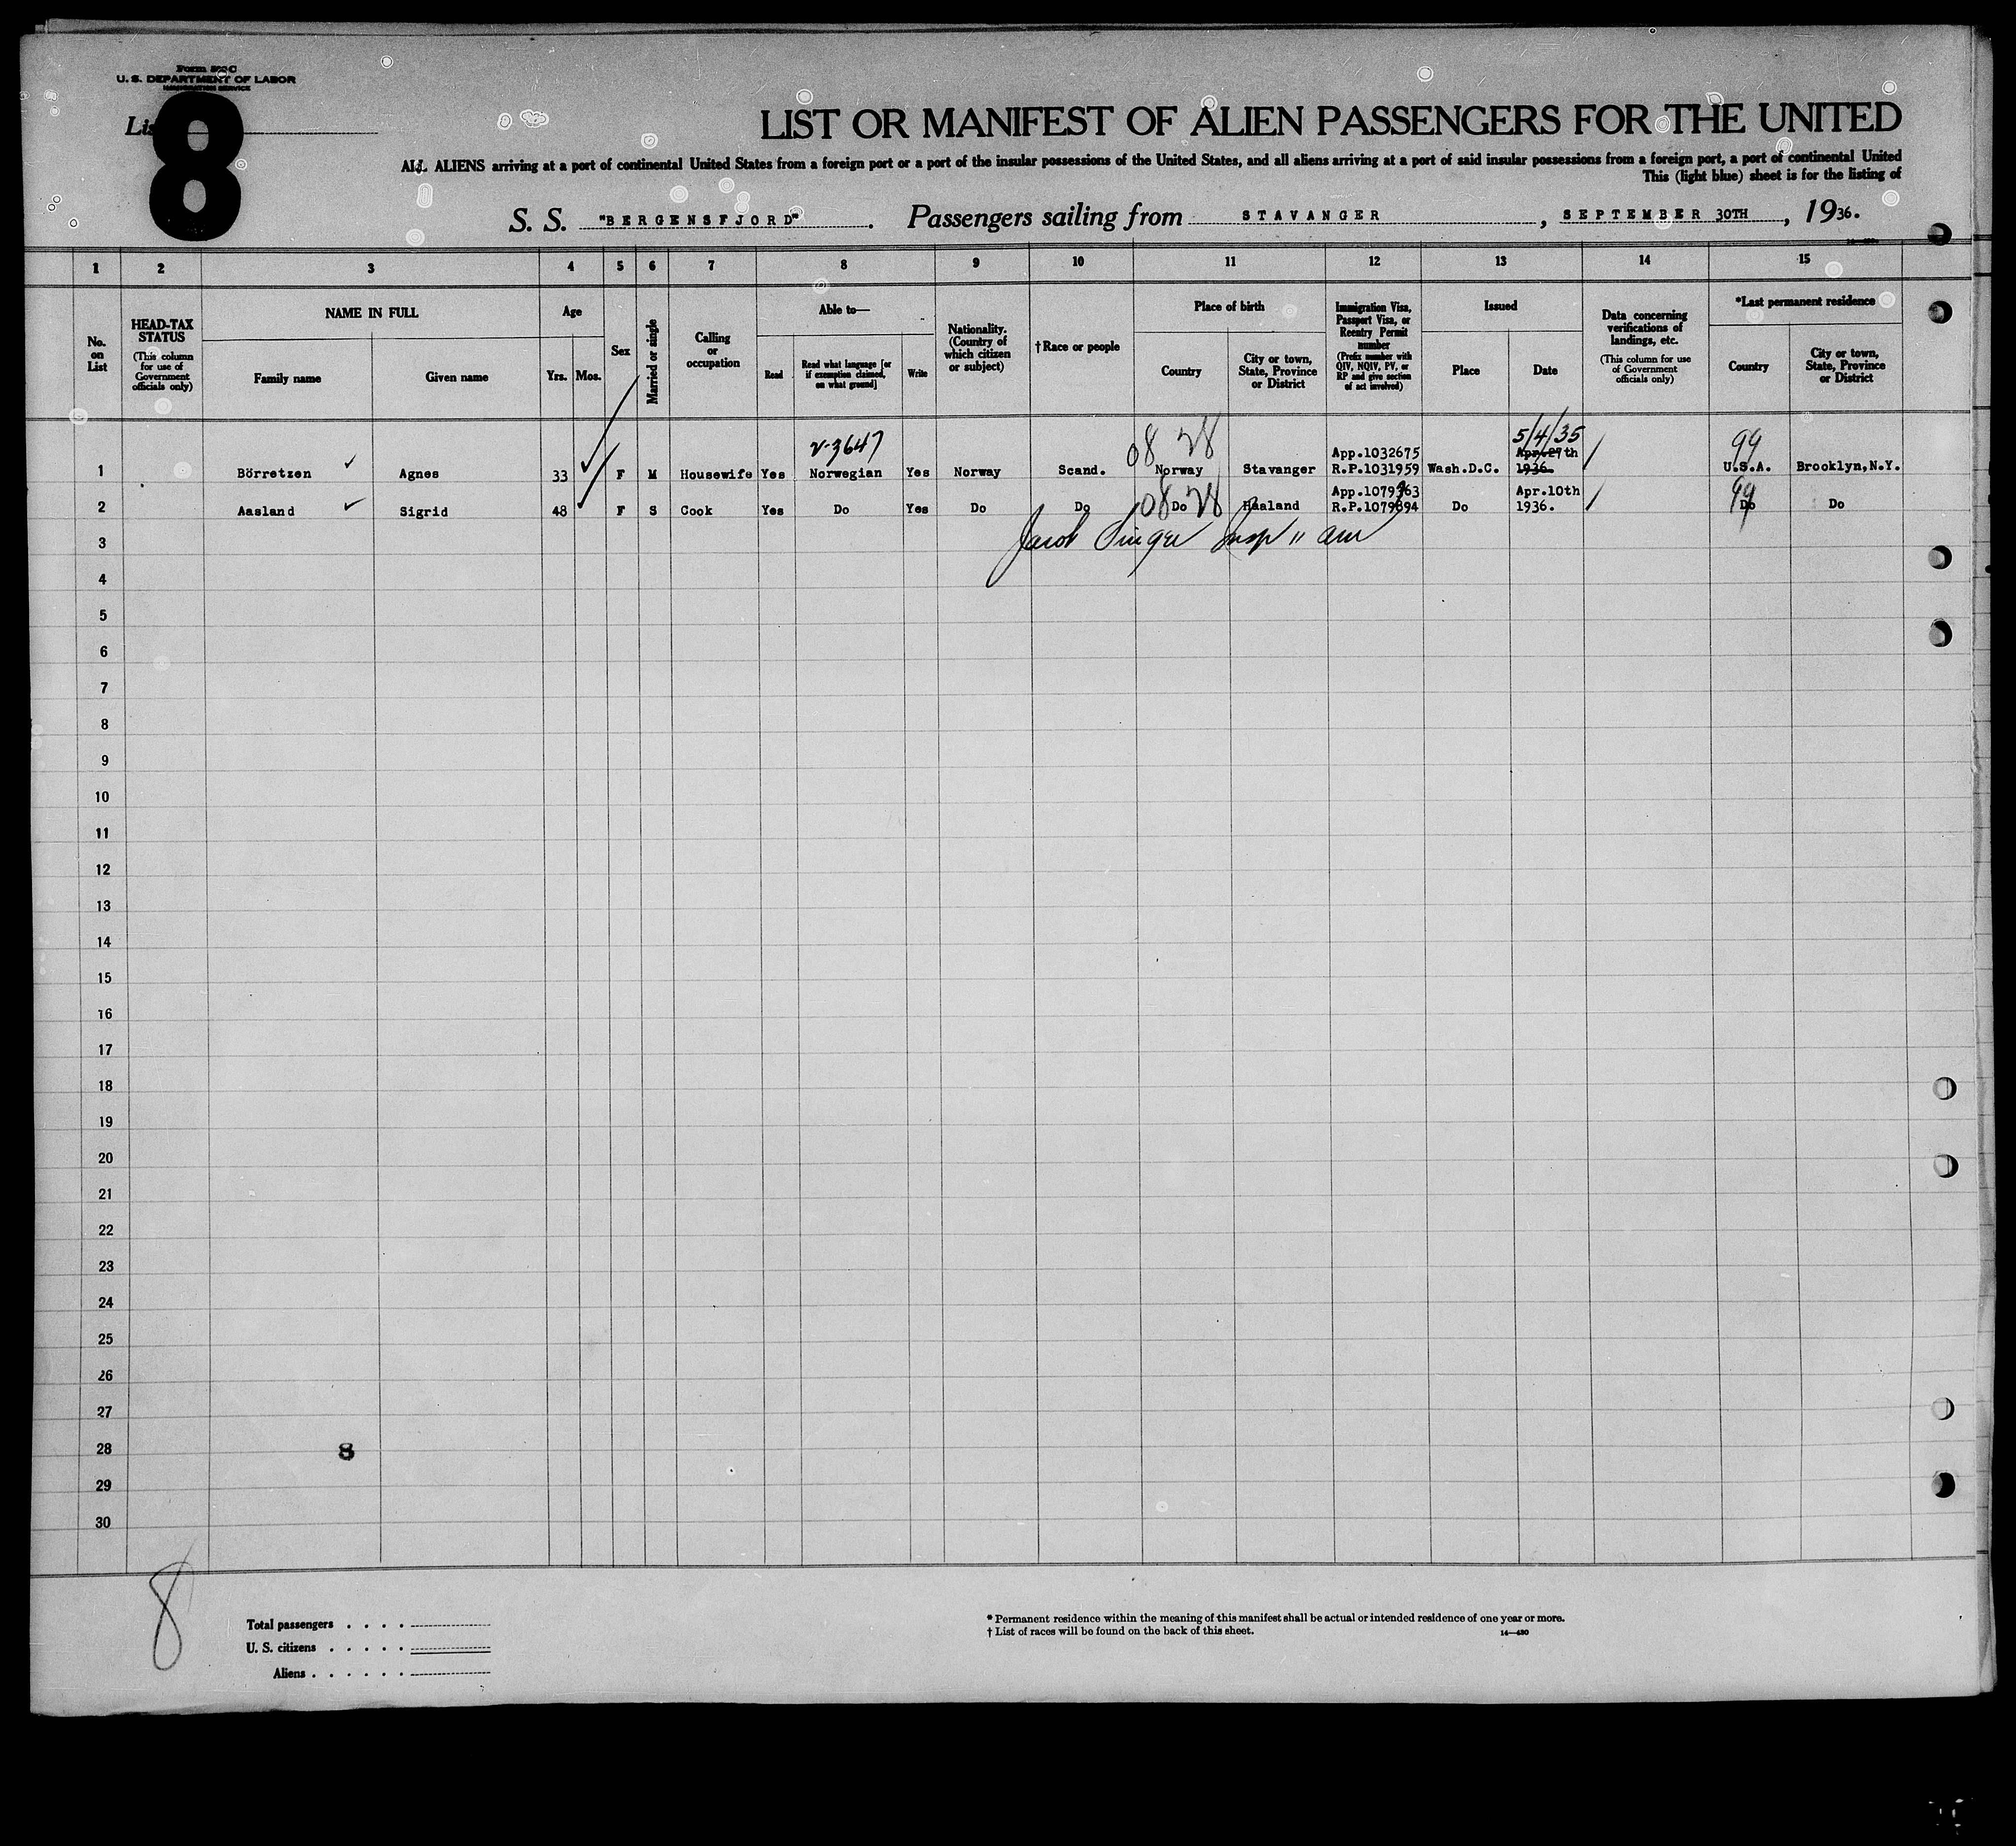 U. S. DEPARTMENT OF LABOR
8
LIST OR MANIFEST OF ALIEN PASSENGERS FOR THE UNITED
ALL ALIENS arriving at a port of continental United States from a foreign port or a port of the insular possessions of the United States, and all aliens arriving at a port of said insular possessions from a foreign port, a port of continental United
This (light blue) sheet is for the listing of
S. S. "BERGENSFJORD". Passengers sailing from STAVANGER, SEPTEMBER 30TH, 1936.
1 2 3 4 5 6 7 8 9 10 11 12 13 14 15
No. on List
HEAD-TAX STATUS (This column for use of Government officials only)
NAME IN FULL
Family name Given name
Age
Yrs. Mos.
Sex
Married or single
Calling or occupation
Able to—
Read
Read what language [or if exemption claimed, on what ground]
Write
Nationality. (Country of which citizen or subject)
†Race or people
Place of birth
Country
City or town, State, Province or District
Immigration Visa, Passport Visa, or Reentry Permit number (Prefix number with QIV, NQIV, PV, or RP and give section of act involved)
Issued
Place Date
Data concerning verifications of landings, etc. (This column for use of Government officials only)
*Last permanent residence
Country
City or town, State, Province or District
v-3647 08 28 5/4/35 99
App.1032675 Apr.27th
1 Börretzen Agnes 33 F M Housewife Yes Norwegian Yes Norway Scand. Norway Stavanger R.P.1031959 Wash.D.C. 1936. U.S.A. Brooklyn,N.Y.
08 28 App.1079363 Apr.10th 99
2 Aasland Sigrid 48 F S Cook Yes Do Yes Do Do Do Haaland R.P.1079894 Do 1936. Do Do
3 Jacob Singer Insp
4
5
6
7
8
9
10
11
12
13
14
15
16
17
18
19
20
21
22
23
24
25
26
27
28 8
29
30
8
Total passengers . . . .
U. S. citizens . . . . .
Aliens . . . . . .
* Permanent residence within the meaning of this manifest shall be actual or intended residence of one year or more.
† List of races will be found on the back of this sheet.